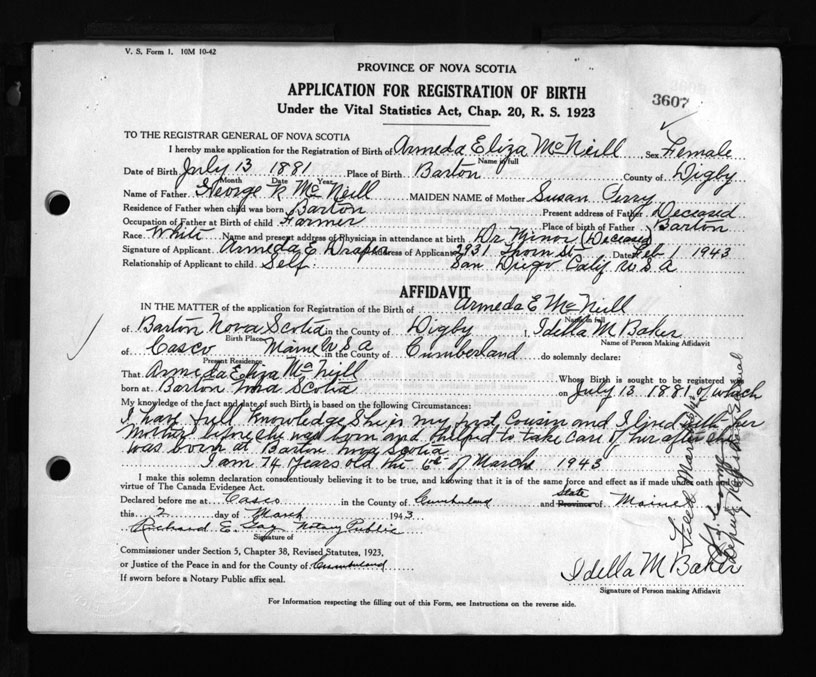 V. S. Form 1. 10M 10-42
PROVINCE OF NOVA SCOTIA
APPLICATION FOR REGISTRATION OF BIRTH
3607
Under the Vital Statistics Act, Chap. 20, R. S. 1923
TO THE REGISTRAR GENERAL OF NOVA SCOTIA
I hereby make application for the Registration of Birth of Armeda Eliza McNeill Sex Female
Name in full
Date of Birth July 13 1881 Place of Birth Barton County of Digby
Month Date Year
Name of Father George R McNeill MAIDEN NAME of Mother Susan Perry
Residence of Father when child was born Barton Present address of Father Deceased
Occupation of Father at Birth of child Farmer Place of birth of Father Barton
Race White Name and present address of Physician in attendance at birth Dr Minor (Deceased)
Signature of Applicant Armeda E Draper Address of Applicant 2931 St. Date Feb 1 1943
Relationship of Applicant to child Self. San Diego Calif U S A
AFFIDAVIT
IN THE MATTER of the application for Registration of the Birth of Armeda E McNeill
Name in full
of Barton Nova Scotia in the County of Digby I, Idella M Baker
Birth Place Name of Person Making Affidavit
of Casco Maine U S A in the County of Cumberland do solemnly declare:
Present Residence
That Armeda Eliza McNeill Whose Birth is sought to be registered was
born at Barton Nova Scotia on July 13 1881 of which
My knowledge of the fact and date of such Birth is based on the following Circumstances:
I have full knowledge She is my first Cousin and I lived with her
Mother before she was born and helped to take care of her after she
was born at Barton Nova Scotia
I am 74 years old the 6th of March 1943
I make this solemn declaration conscientiously believing it to be true, and knowing that it is of the same force and effect as if made under oath and by
virtue of The Canada Evidence Act.
Declared before me at Casco in the County of Cumberland and Province of State Maine
this 2 day of March 1943
Richard E. Gay Notary Public
Signature of
Commissioner under Section 5, Chapter 38, Revised Statutes, 1923,
or Justice of the Peace in and for the County of Cumberland
If sworn before a Notary Public affix seal.
Idella M Baker
Signature of Person making Affidavit
For Information respecting the filling out of this Form, see Instructions on the reverse side.
Deputy Registrar General